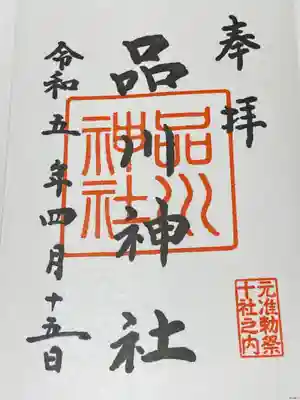 奉拝
品川神社
品川
神社
元准勅祭
十社之内
令和五年四月十五日